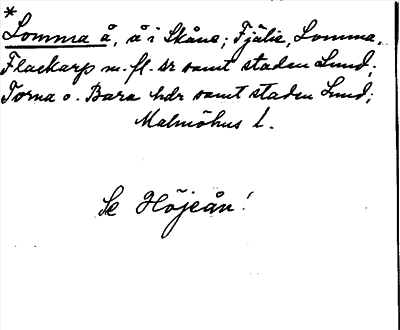 *
Lomma å, å i Skåne; Fjälie, Lomma,
Flackarp m. fl. sr samt staden Lund;
Torna o. Bara hdr samt staden Lund;
Malmöhus l.
Se Höjeån!